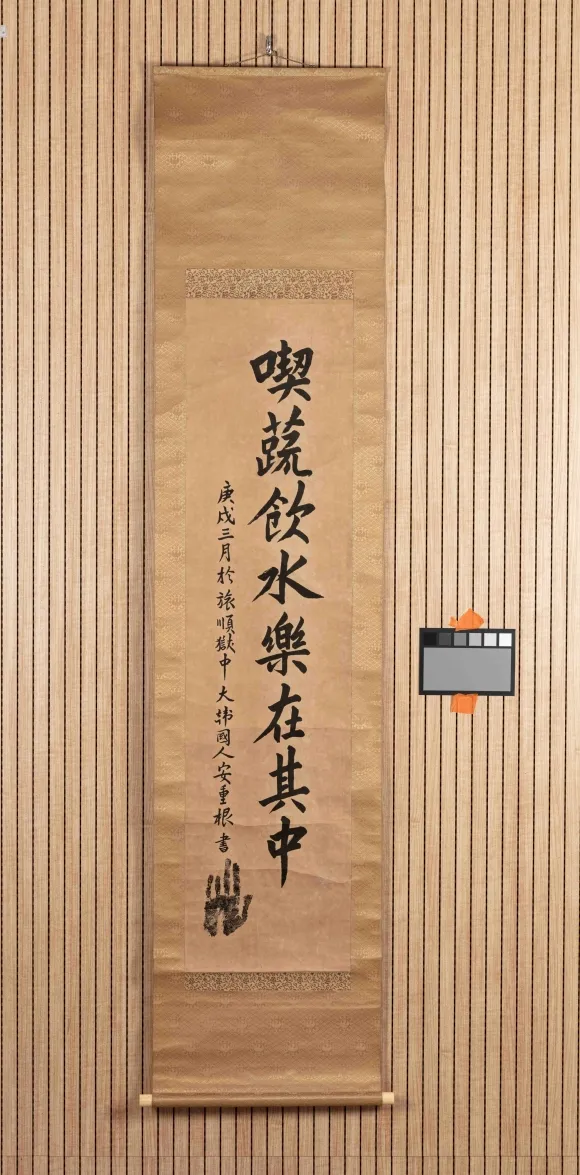 喫蔬飮水樂在其中
庚戌三月於旅順獄中 大韓國人安重根書